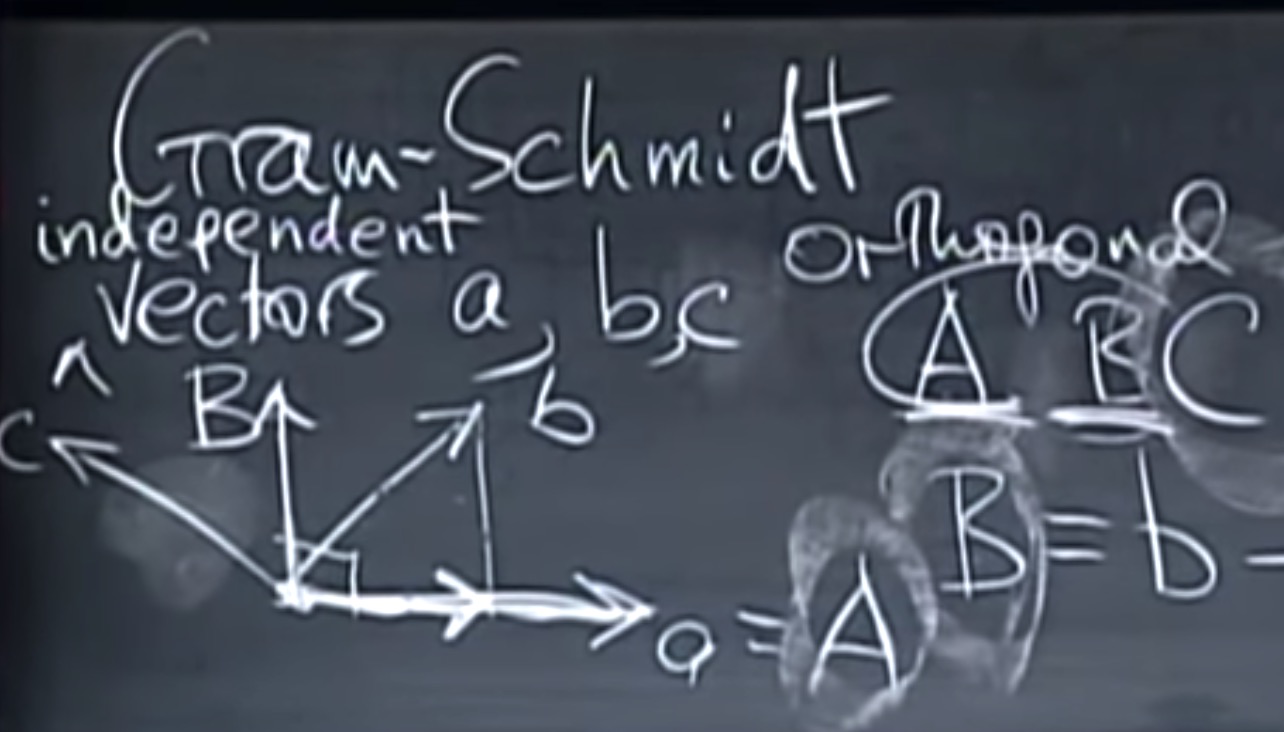 Gram-Schmidt
independent
vectors a, b, c
orthogonal
A B C
c
B
b
B = b -
a = A